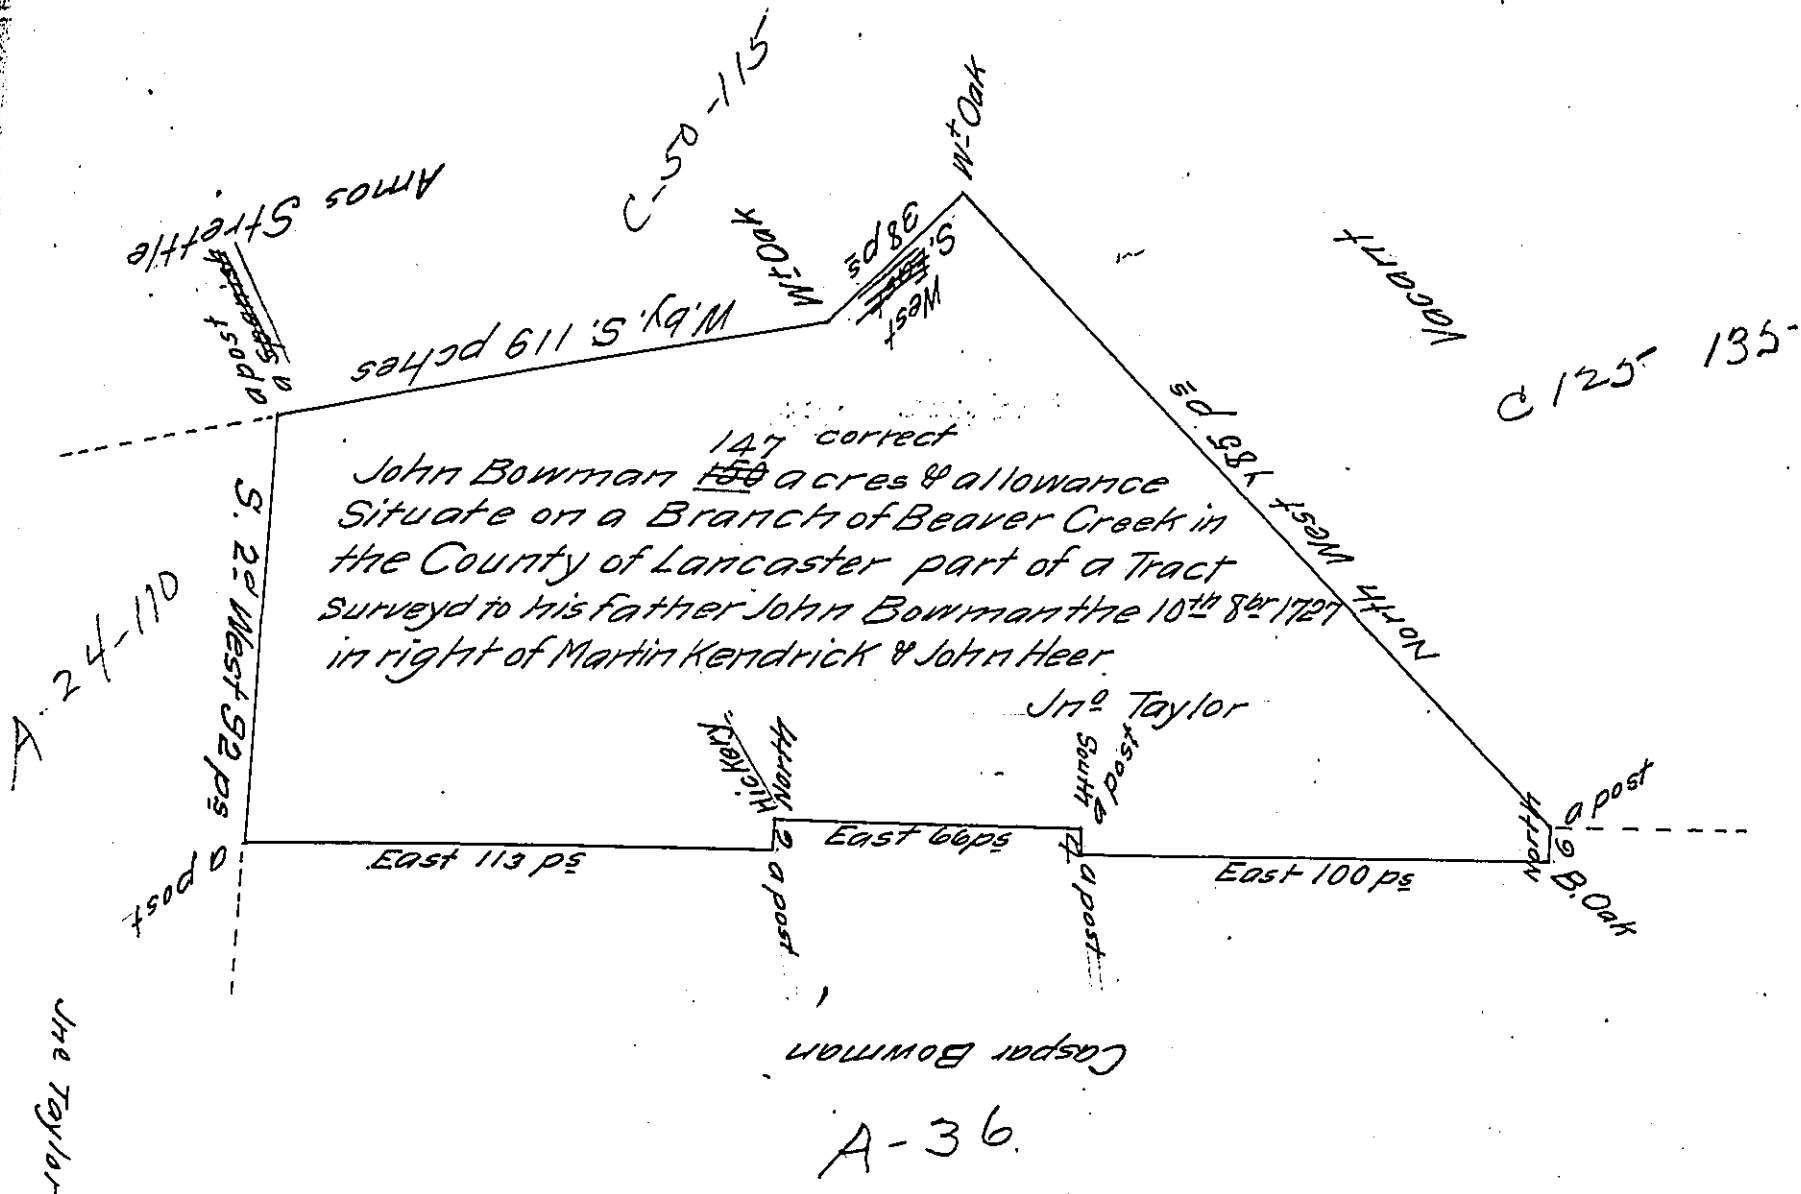 C-50-115
Wt Oak
Amos Strettle
a post
Wt Oak
38 ps
S. East
West
W. by. S. 119 pches
Vacant
C 125 135
North West 185 ps
147 correct
John Bowman 150 acres & allowance
Situate on a Branch of Beaver Creek in
the County of Lancaster part of a Tract
Surveyd to his father John Bowman the 10th 8br 1727
in right of Martin Kendrick & John Heer
Jno Taylor
S. 2d West 92 ps
A-24-110
a post
East 113 ps
Hickory
North
2 a post
East 66 ps
South
a post
4 a post
East 100 ps
North
9
a post
B. Oak
Caspar Bowman
A-36.
Jne Taylor